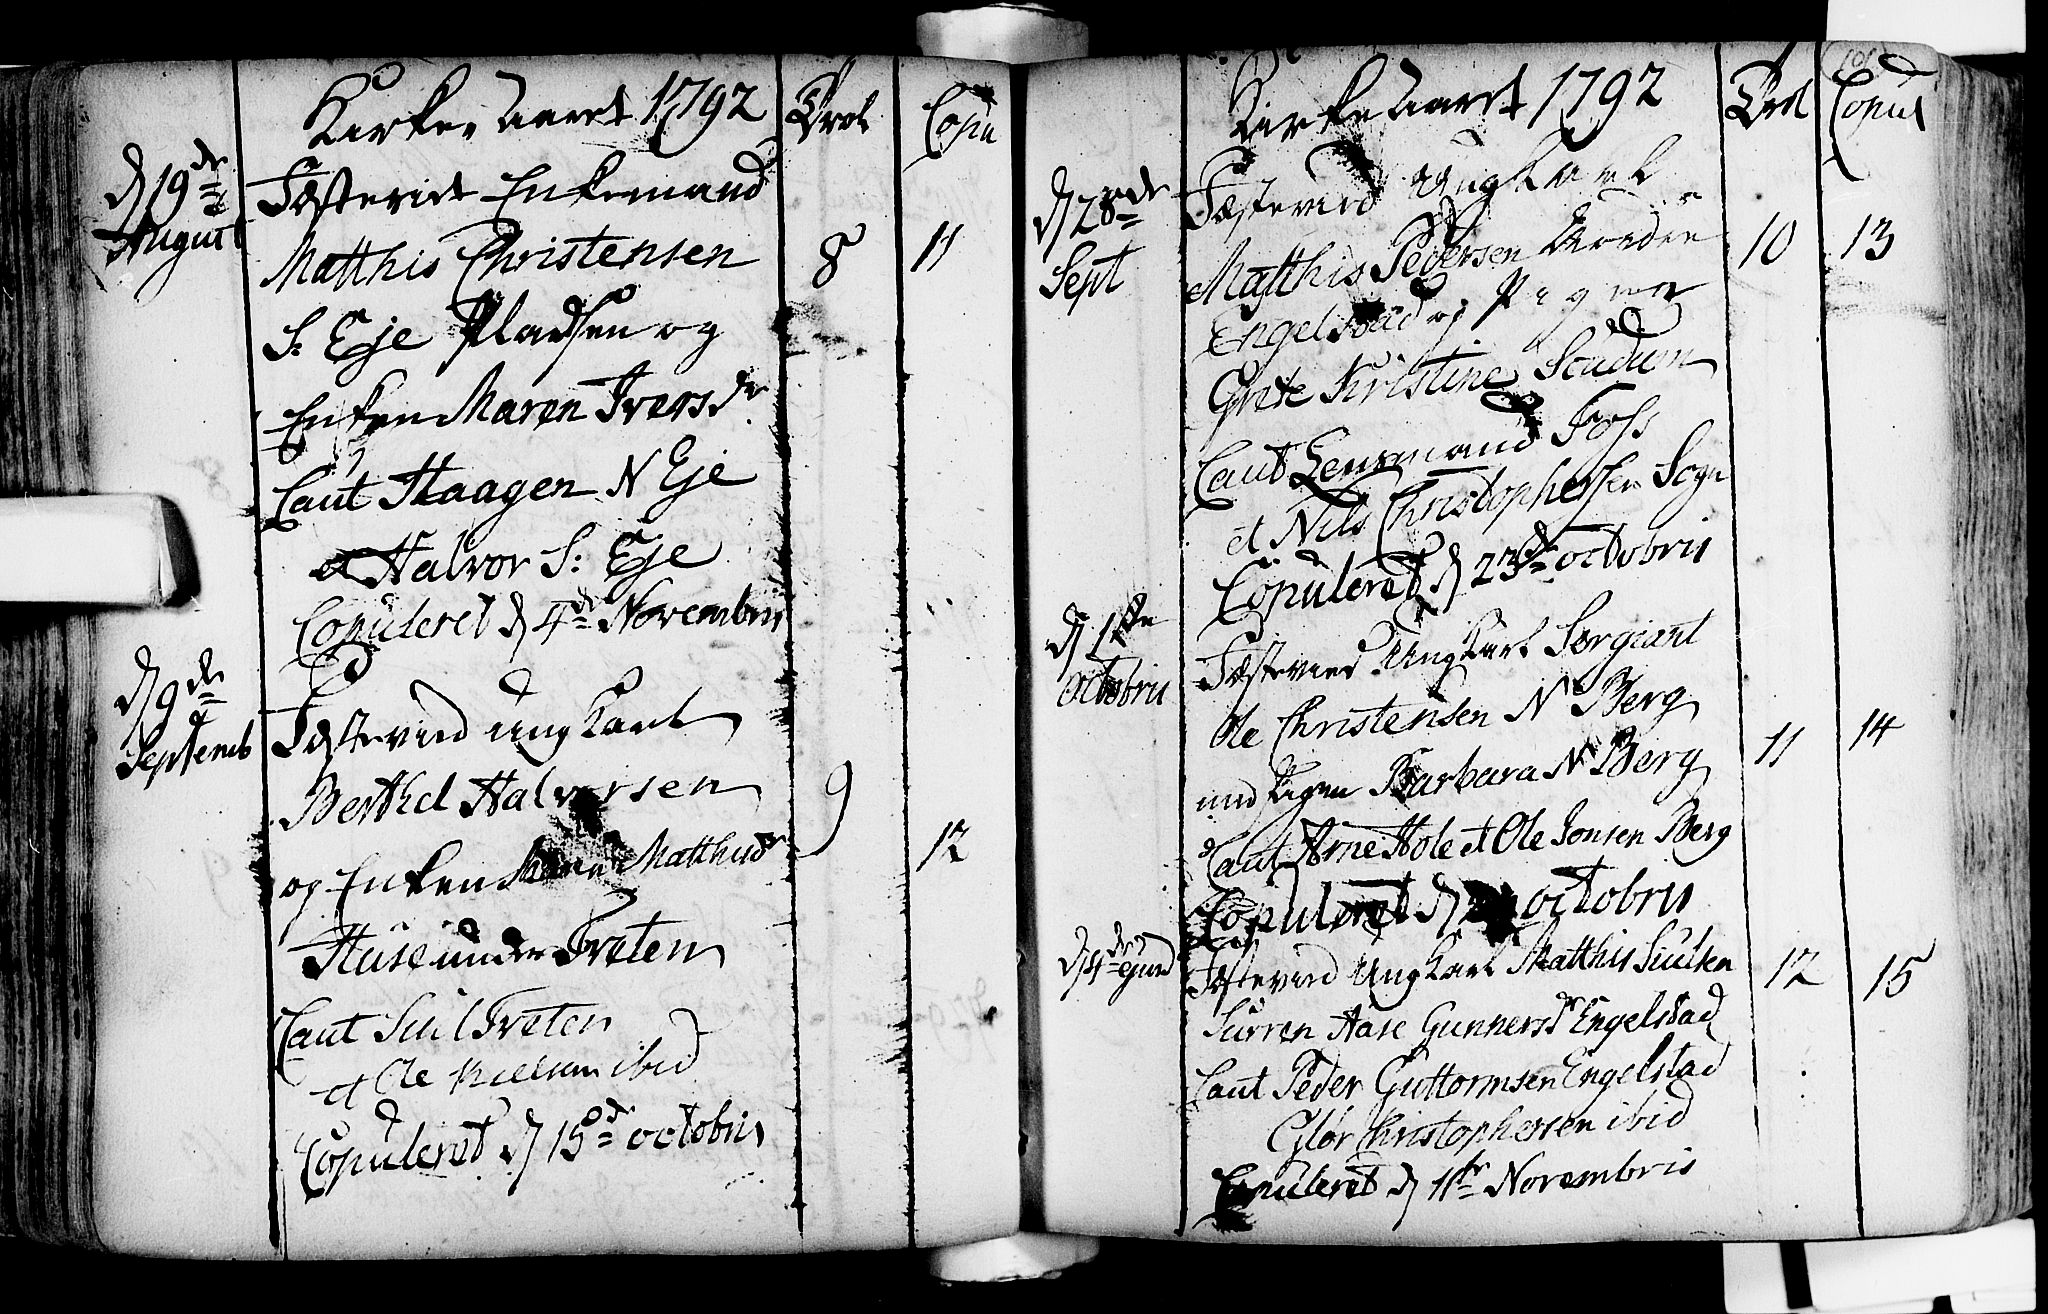 Kirke Aaret 1792 Trol Copu
d 19de August
Fæsteviet Enkemand
Matthis Christensen 8 11
S: Eje Pladsen og
Enken Maren Iversdr
Caut Haagen N Eje
et Halvor S: Eje
Copuleret d 4de Novembris
d 9de Septemb
Fæstevied ung Karl
Berthel Halvorsen 9
og Enken Matthisdr 12
Huse under Treten
Caut Treten
et Ole ibid
Copuleret d 15de octobris
101
Kirke Aaret 1792 Trol Copul
d 28de Sept
Fæstevied Ung Karl
Matthis Pedersen 10 13
Engelstad og Pigen
Grete Kristine
Caut Lensmand Foss
et Nils Christophersen
Copuleret d 23de octobris
d 1ste octobris
Fæstevied Ung Karl Sergiant
Ole Christensen N Berg
und Pigen Barbara N Berg 11 14
Caut Arne Hole et Ole Jonsen Berg
Copuleret d octobris
d 4de ejusd
Fæstevied Ung Karl Matthis 12 15
Aase Gunnersdr Engelstad
Caut Peder Guttormsen Engelstad
Glør Christophersen ibid
Copuleret d 11te Novembris